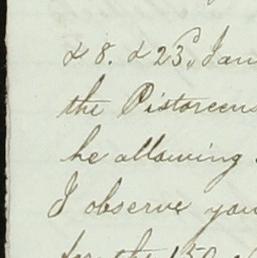 & 8. & 23, Jan
the Pistareens
he allowing
I observe you
for the 150